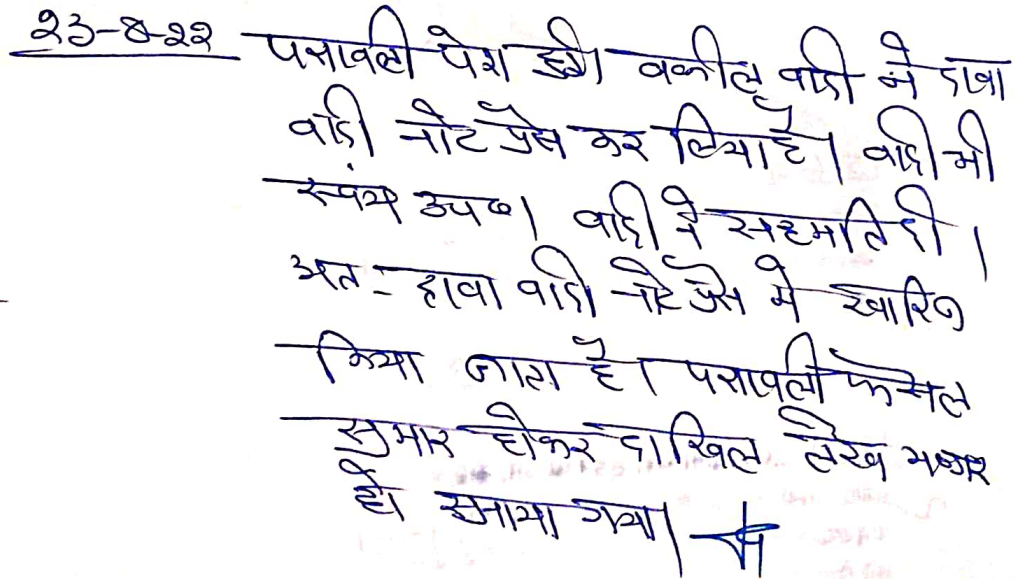 23-8-22 पत्रावली पेश हुई। वकील वादी ने दावा
वादी नोट प्रेस कर लिया है। वादी भी
स्वंय उप०। वादी ने सहमति दी।
अतः दावा वादी नोट प्रेस मे खारिज
किया जाता है। पत्रावली फैसल
सुमार होकर दाखिल लेख भण्डार
हो सुनाया गया।